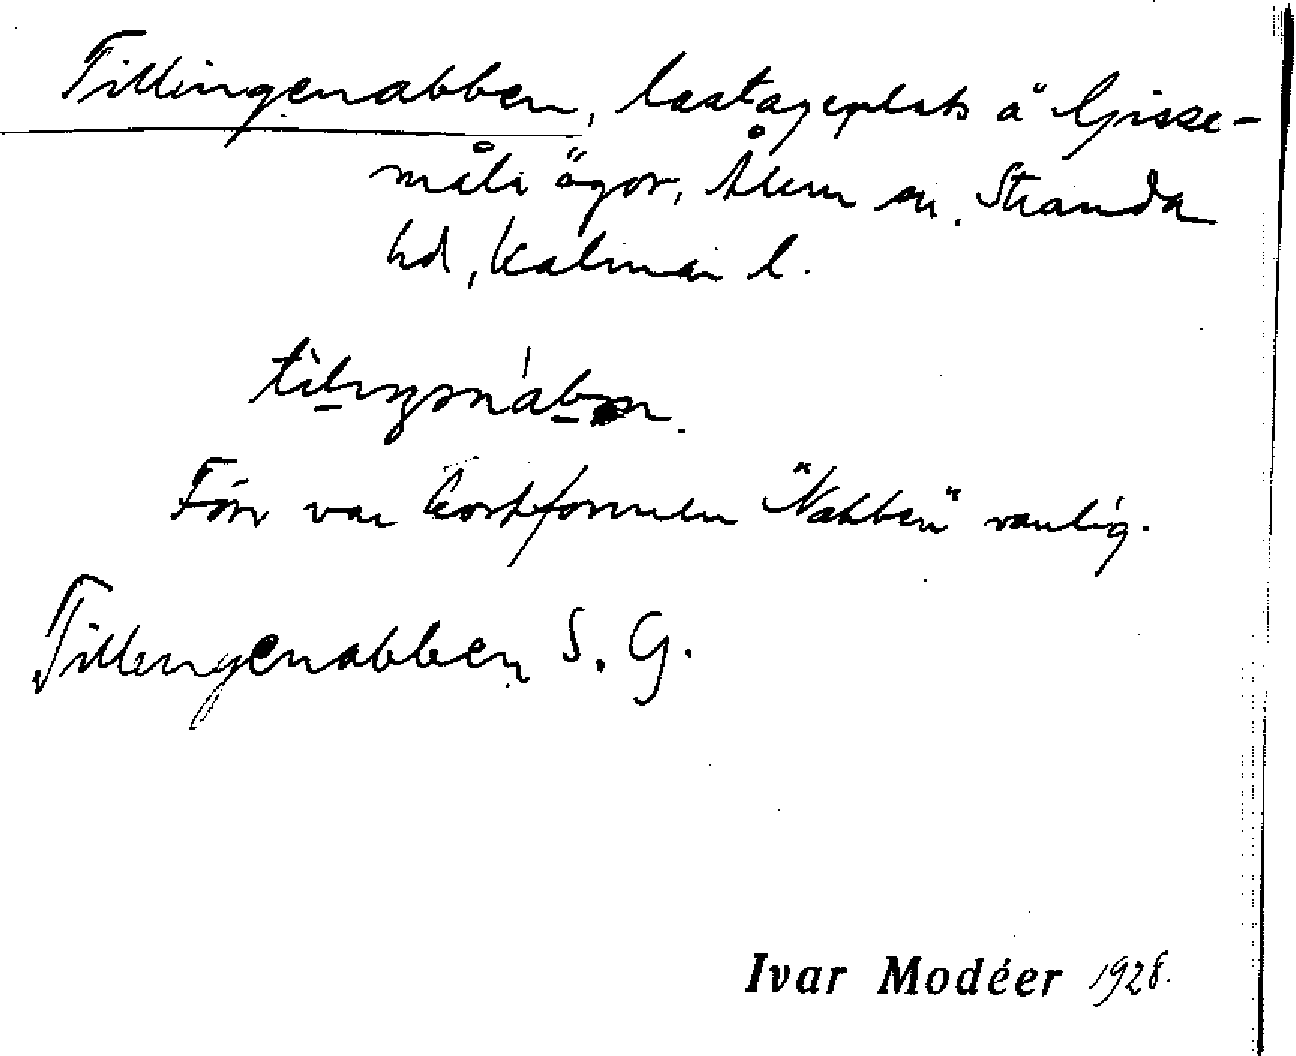 Tillingenabben, lastageplats å Gisse-
måla ägor, Ålem sn. Stranda
hd, Kalmar l.
Förr var kortformen "Nabben" vanlig.
Tillingenabben S. G.
Ivar Modéer 1928.